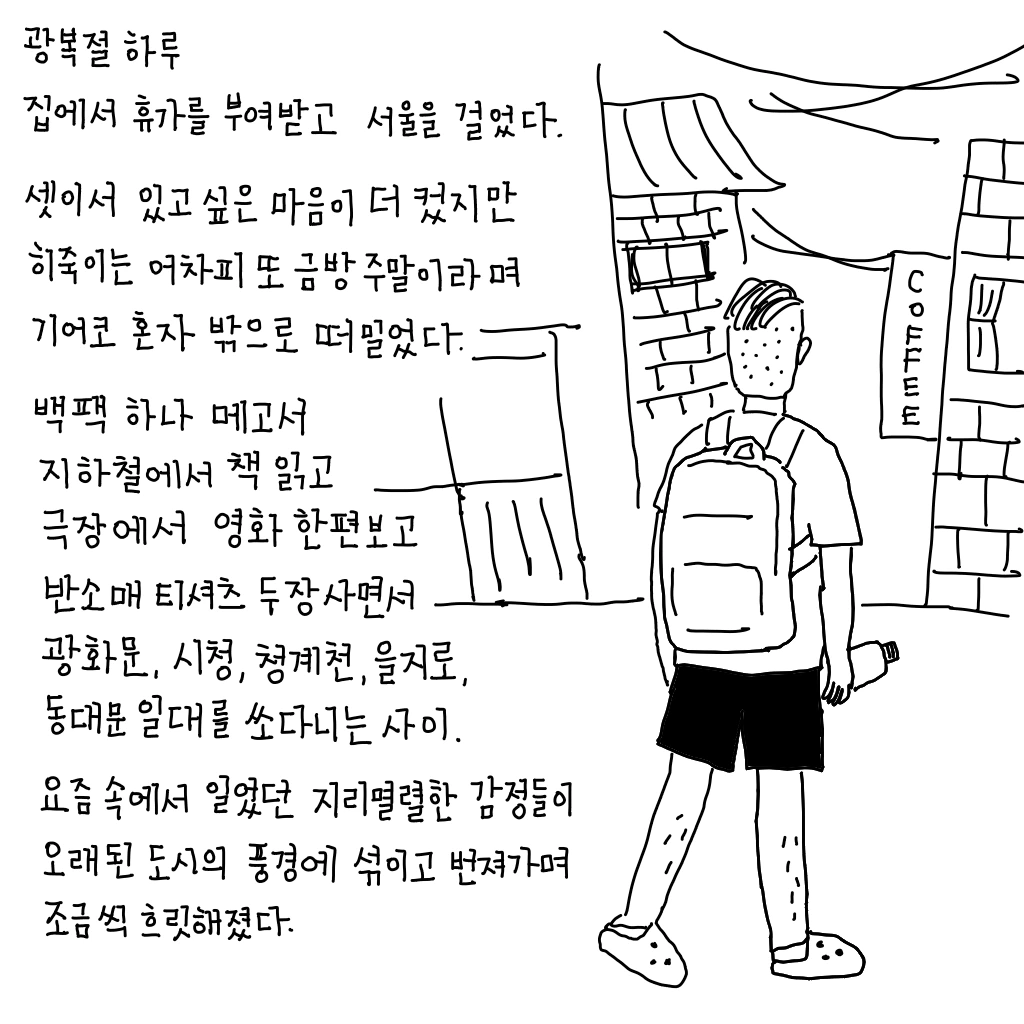 광복절 하루
집에서 휴가를 부여받고 서울을 걸었다.
셋이서 있고 싶은 마음이 더 컸지만
히죽이는 어차피 또 금방 주말이라며
기어코 혼자 밖으로 떠밀었다.
백팩 하나 메고서
지하철에서 책 읽고
극장에서 영화 한편보고
반소매 티셔츠 두장사면서
광화문, 시청, 청계천, 을지로,
동대문 일대를 쏘다니는 사이.
요즘 속에서 일었던 지리멸렬한 감정들이
오래된 도시의 풍경에 섞이고 번져가며
조금씩 흐릿해졌다.
COFFEE